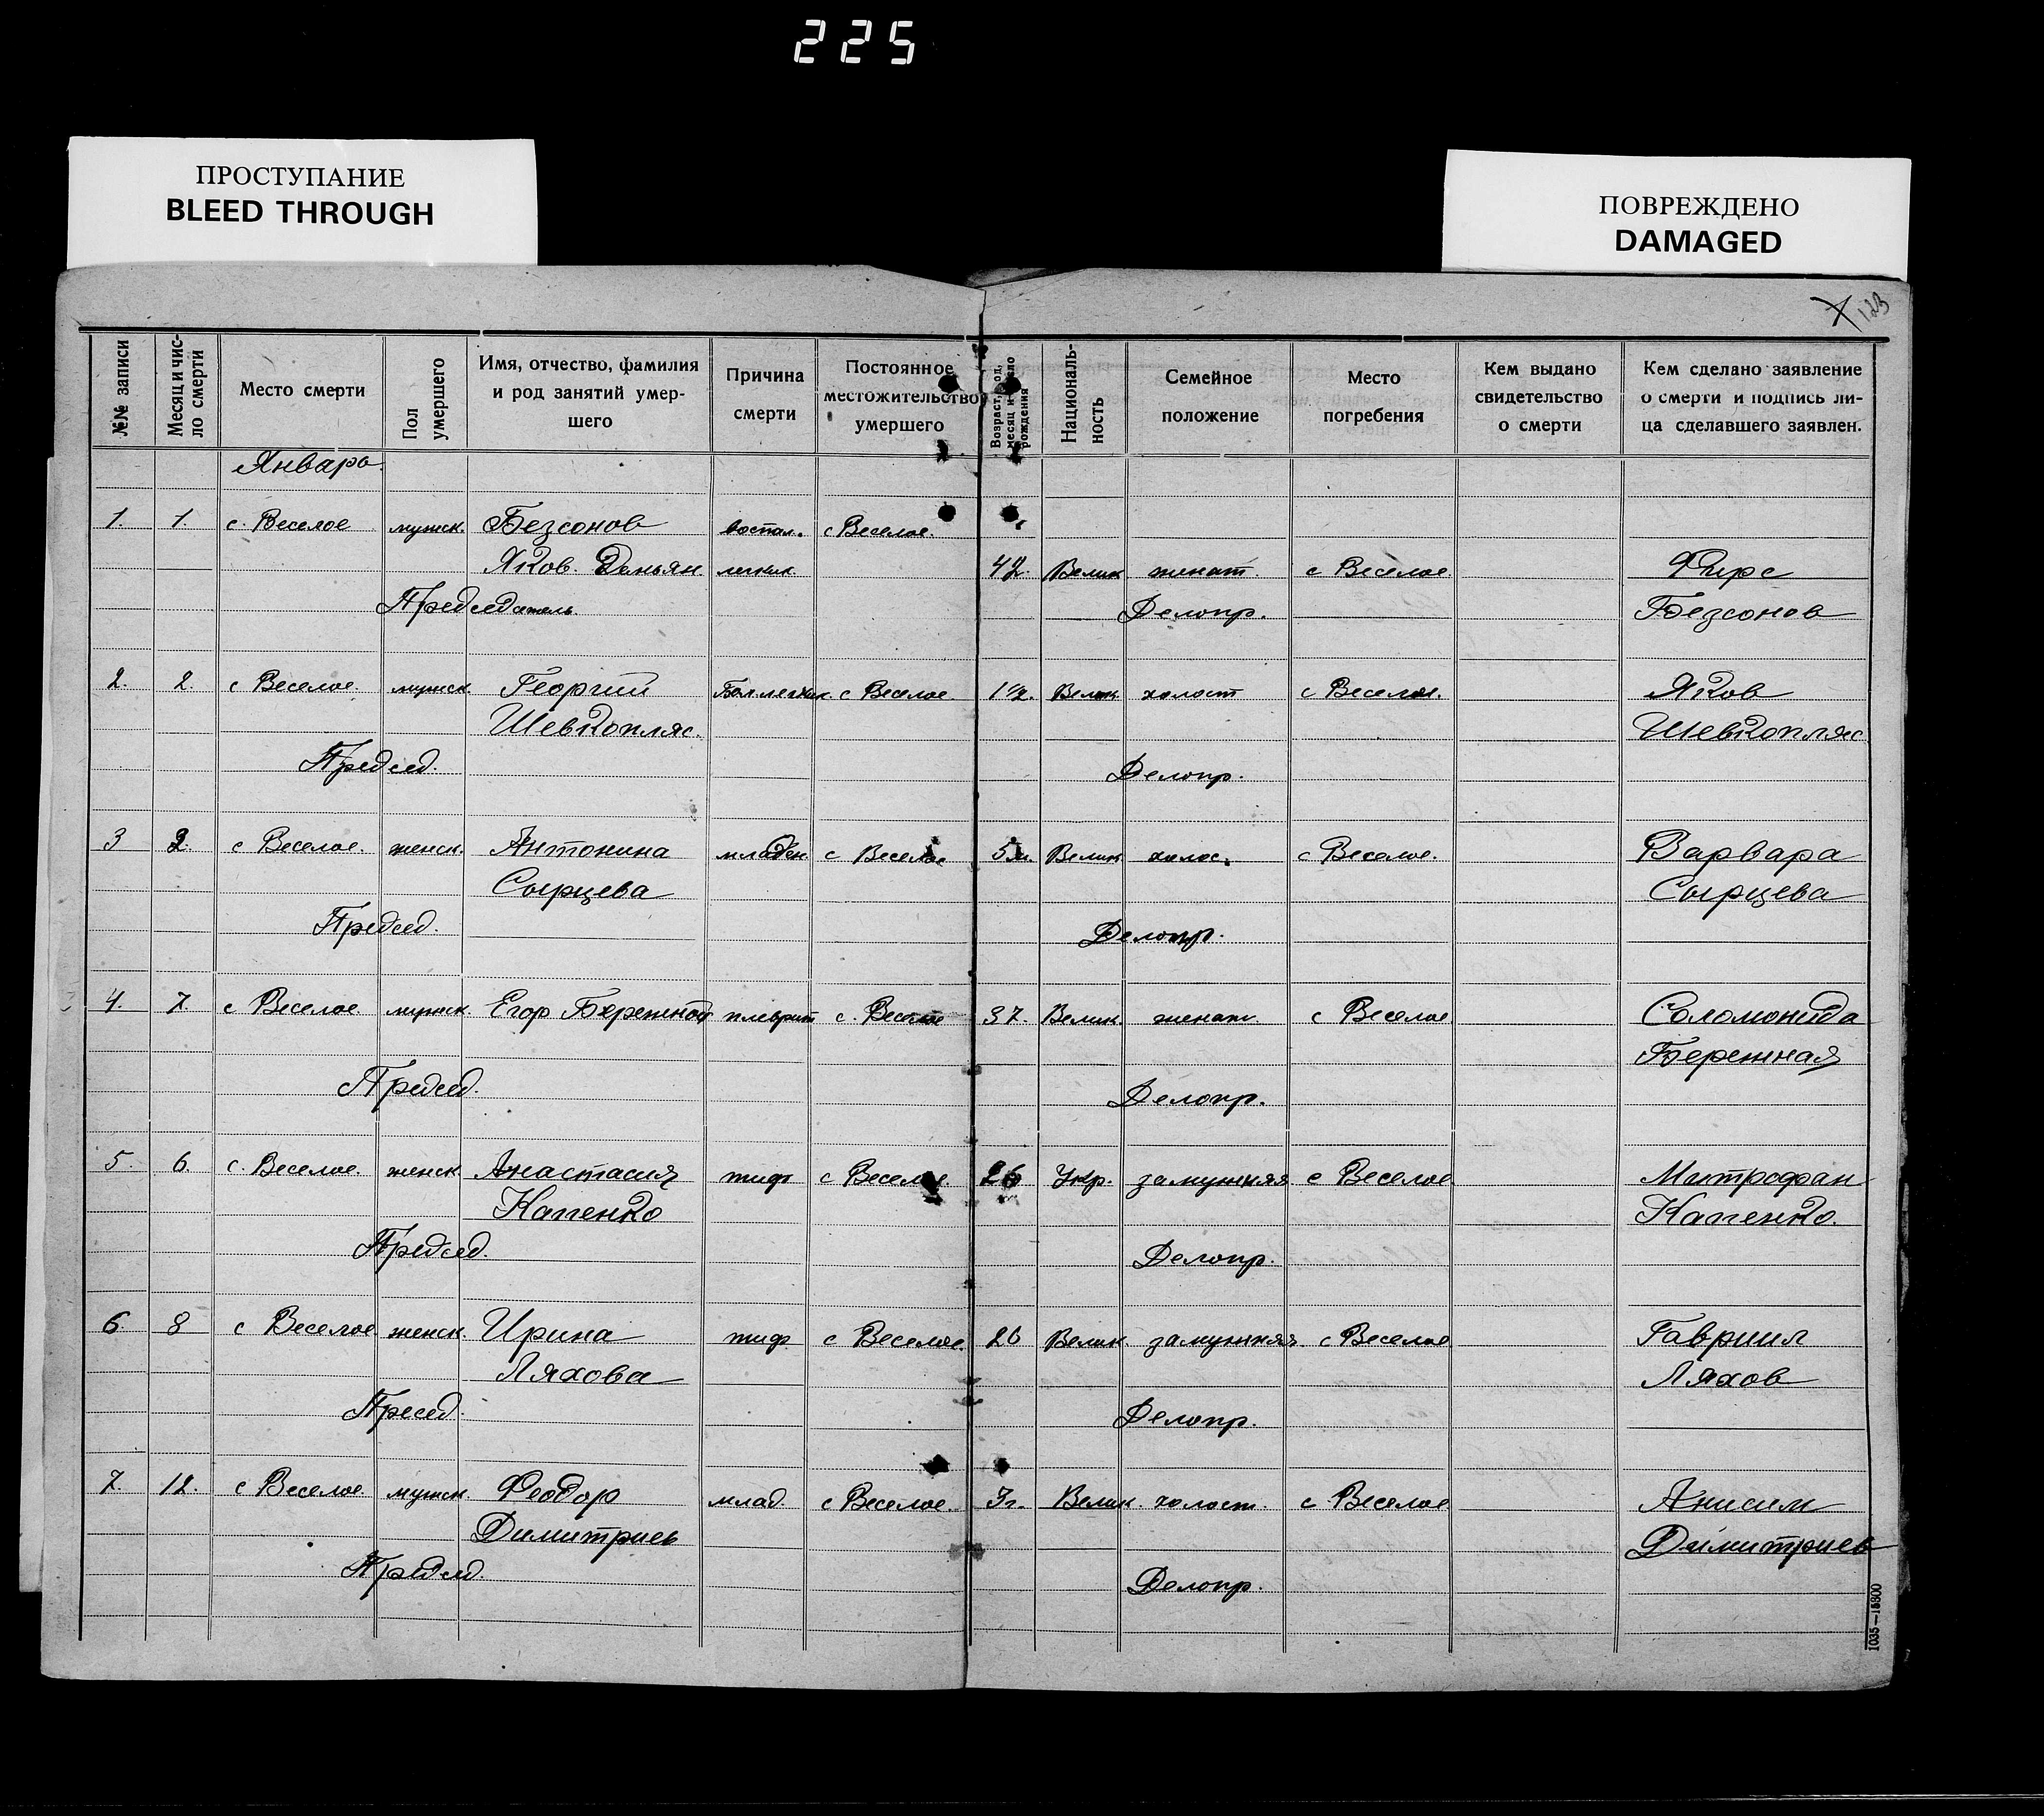 225
ПРОСТУПАНИЕ
BLEED THROUGH
ПОВРЕЖДЕНО
DAMAGED
123
№№ записи
Месяц и чис-
ло смерти
Место смерти
Пол
умершего
Имя, отчество, фамилия
и род занятий умер-
шего
Причина
смерти
Постоянное
местожительство
умершего
Возраст, год,
месяц и число
рождения
Националь-
ность
Семейное
положение
Место
погребения
Кем выдано
свидетельство
о смерти
Кем сделано заявление
о смерти и подпись ли-
ца сделавшего заявлен.
Январь
1. 1. с. Веселое мужск. Безсонов воспал. с Веселое.
Яков Демьян легких 42. Велик женат. с Веселое Фирс
Председатель Делопр. Безсонов
2. 2. с Веселое. мужск. Георгий с Веселое. Велик холост с Веселое. Яков
Шевкопляс. Шевкопляс
Председ. Делопр.
3 2. с Веселое. женск. Антонина младен с Веселое 5м. Велик холос. с Веселое. Варвара
Сырцева Сырцева
Председ. Делопр.
4. 7. с Веселое мужск. Егор Бережной плеврит с. Веселое 37. Велик. женат. с Веселое Соломонида
Бережная
Председ. Делопр.
5. 6. с. Веселое. женск Анастасия тиф с Веселое 26 Укр. замужняя с Веселое Митрофан
Капенко Капенко.
Председ. Делопр.
6. 8 с Веселое женск. Ирина тиф с Веселое. 26 Велик. замужняя. с Веселое Гавриил
Ляхова Ляхов
Пресед. Делопр.
7. 12. с Веселое мужск. Феодор млад. с Веселое. 3г. Велик. холост. с Веселое Анисим
Димитриев Димитриев
Председ Делопр.
1035—15800